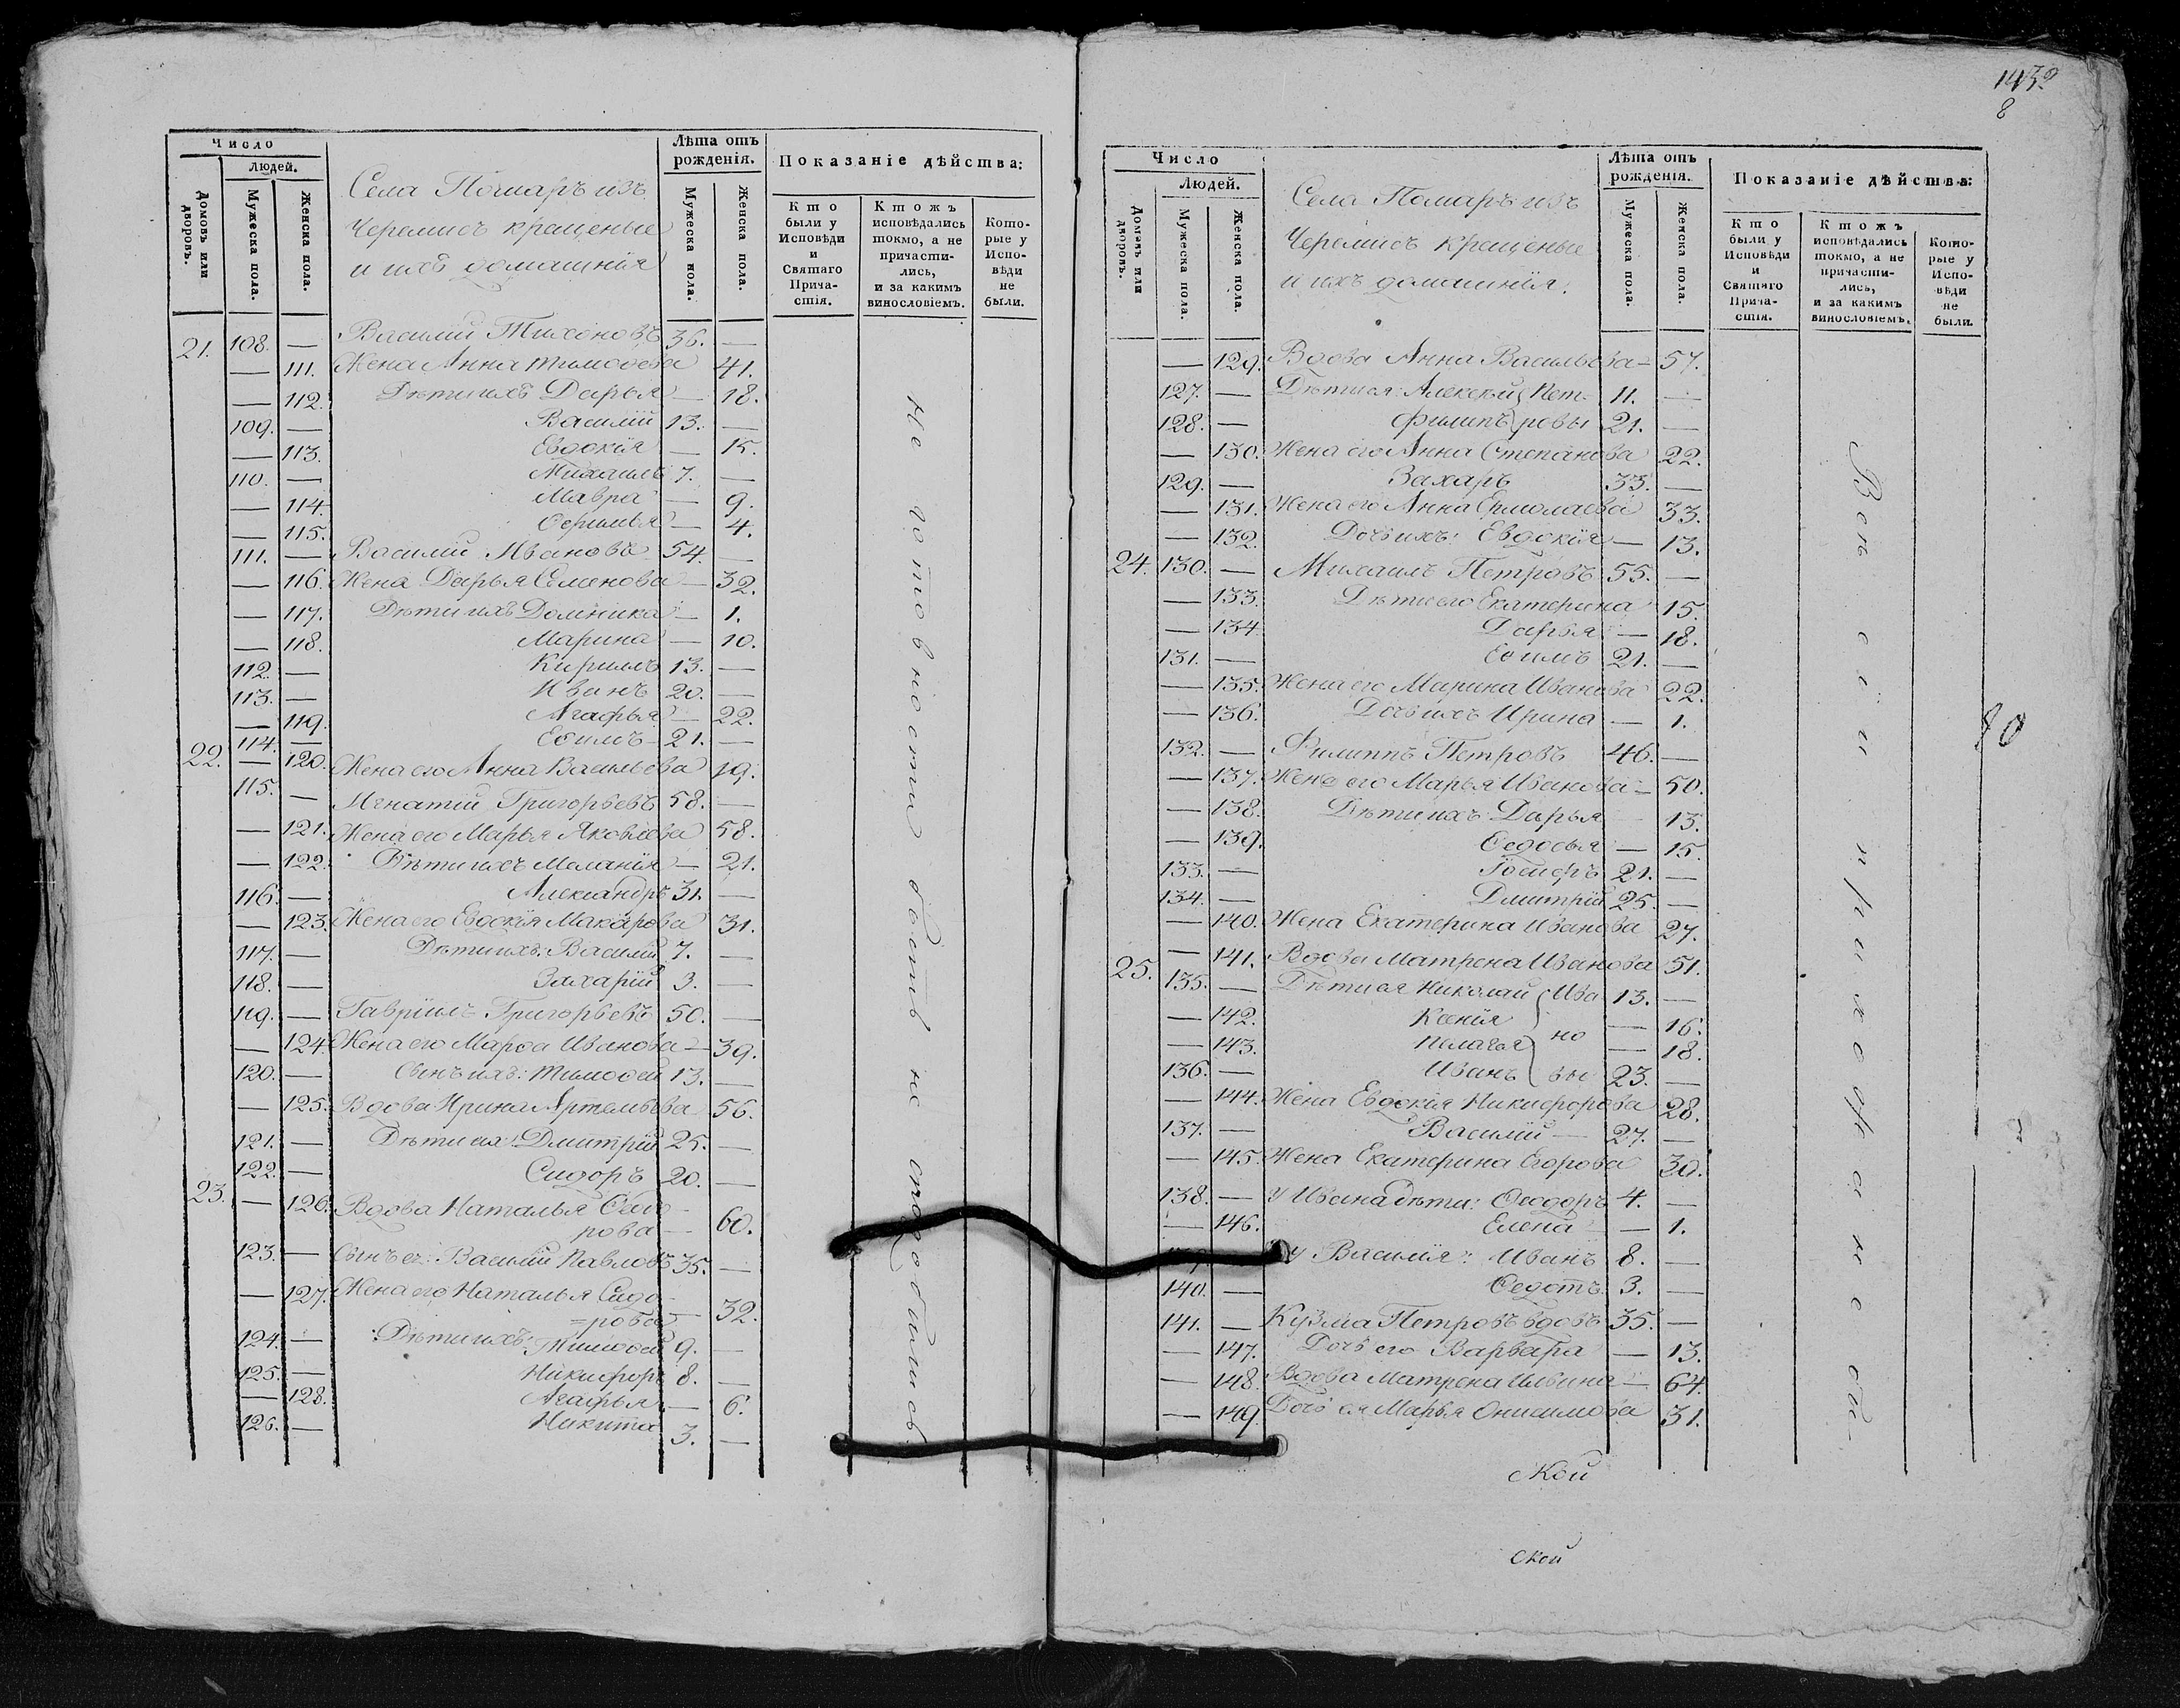 Число
Людей.
Домовъ или дворовъ.
Мужеска пола.
Женска пола.
Села Помаръ изъ
Черемисъ крещеные
и ихъ домашнія
Лѣта отъ рожденія.
Мужеска пола.
Женска пола.
Показаніе дѣйства:
Кто были у Исповѣди и Святаго Прича-стія.
Ктожъ исповѣдались токмо, а не причасти-лись, и за какимъ винословіемъ.
Кото-рые у Испо-вѣди не были.
21. 108. — Василий Тихоновъ 36. —
— 111. Жена Анна Тимоѳева 41.
— 112. Дѣти ихъ Дарья — 18.
109. — Василій 13. —
— 113. Евдокія — 15.
110. — Михаилъ 7. —
— 114. Мавра — 9.
— 115. — 4.
111. — Василий Ивановъ 54. —
— 116. Жена Дарья Семенова — 32.
— 117. Дѣти ихъ Домника — 1.
— 118. Марина — 10.
112. — Кирилъ 13. —
113. — Иванъ 20. —
— 119. Агафья — 22.
114. — Еѳимъ 21. —
22. — 120. Жена его Анна Васильева 19.
115. — Игнатій Григорьевъ 58. —
— 121. Жена его Марья Яковлева 58.
— 122. Дѣти ихъ Меланія — 21.
116. — Александръ 31. —
— 123. Жена его Евдокія Макарова 31.
117. — Дѣти ихъ: Василій 7. —
118. — Захарій 3. —
119. — Гавріилъ Григорьевъ 50. —
— 124. Жена его Марѳа Иванова — 39.
120. — Сынъ ихъ: Тимоѳей 13. —
— 125. Вдова Ирина Артемьева 56.
121. — Дѣти ея: Дмитрій 25. —
122. — Сидоръ 20. —
23. — 126. Вдова Наталья Сидо-
рова — 60.
123. — Сынъ ея: Василий Павловъ 35. —
— 127. Жена его Наталья Сидо-
=рова — 32.
124. — Дѣти ихъ: Тимоѳей 9. —
125. — Никифоръ 8. —
— 128. Агафья — 6.
126. — Никита 3. —
не готовности болѣ не сподобились
143
8
Число
Людей.
Домовъ или дворовъ.
Мужеска пола.
Женска пола.
Села Помаръ изъ
Черемисъ крещеные
и ихъ домашнія.
Лѣта отъ рожденія.
Мужеска пола.
Женска пола.
Показаніе дѣйства:
Кто были у Исповѣди и Святаго Прича-стія.
Ктожъ исповѣдались токмо, а не причасти-лись, и за какимъ винословіемъ.
Кото-рые у Испо-вѣди не были.
— 129. Вдова Анна Васильева — 57.
127. — Дѣти ея: Алексѣй Пет- 11. —
128. — Филипъ ровы 21. —
— 130. Жена его Анна Степанова 22.
129. — Захаръ 33. —
— 131. Жена его Анна Ермолаева 33.
— 132. Дочь ихъ: Евдокія — 13.
24. 130. — Михаилъ Петровъ 55. —
— 133. Дѣти его Екатерина 15.
— 134. Дарья — 18.
131. — Еѳимъ 21. —
— 135. Жена его Марина Иванова 22.
— 136. Дочь ихъ Ирина — 1.
132. — Филиппъ Петровъ 46. —
— 137. Жена его Марья Иванова — 50.
— 138. Дѣти ихъ: Дарья 13.
— 139. Ѳедосья — 15.
133. — Іосифъ 21. —
134. — Дмитрій 25. —
— 140. Жена Екатерина Иванова 27.
25. — 141. Вдова Матрена Иванова 51.
135. — Дѣти ея Николай Ива 13. —
— 142. Ксенія — 16.
— 143. Пелагья но — 18.
136. — Иванъ вы 23. —
— 144. Жена Евдокія Никифорова 28.
137. — Василій — 27. —
— 145. Жена Екатерина Егорова 30.
138. — У Ивана дѣти: Ѳеодоръ 4. —
— 146. Елена — 1.
У Василія: Иванъ 8. —
140. — Ѳедотъ 3. —
141. — Кузма Петровъ вдовъ 35. —
— 147. Дочь его Варвара — 13.
— 148. Вдова Матрена Ильина — 64.
— 149. Дочь ея Марья Онисимова 31.
приходской
ской